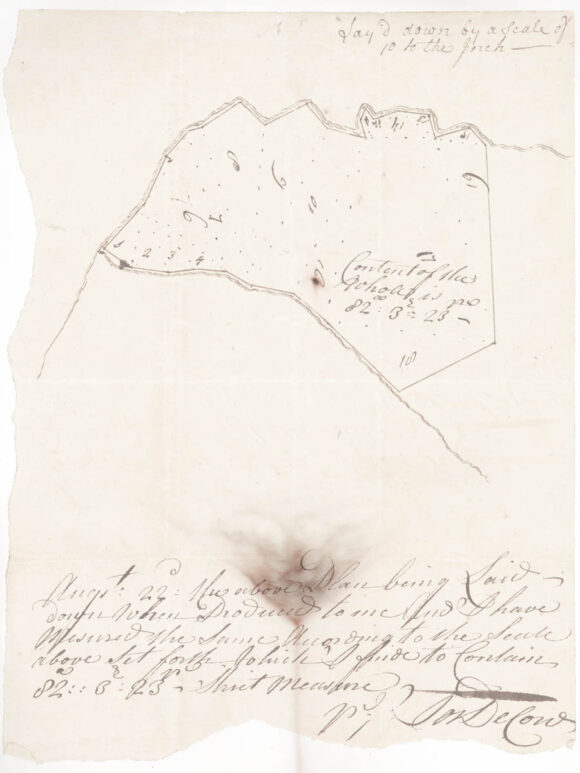 Lay'd down by a Scale of
10 to the Inch
14
5
8
9
19
10
6
7
1
2 3 4
Content of the
Whole is pr
82: 3: 23
18
Augst: 22d: the above Plan being Laid
down When Produced to me And I have
Mesured the Same According to the Scale
above Set forth Which I finde to Contain
82:: 3: 23 Strict Measure
Pr Jos DeCow